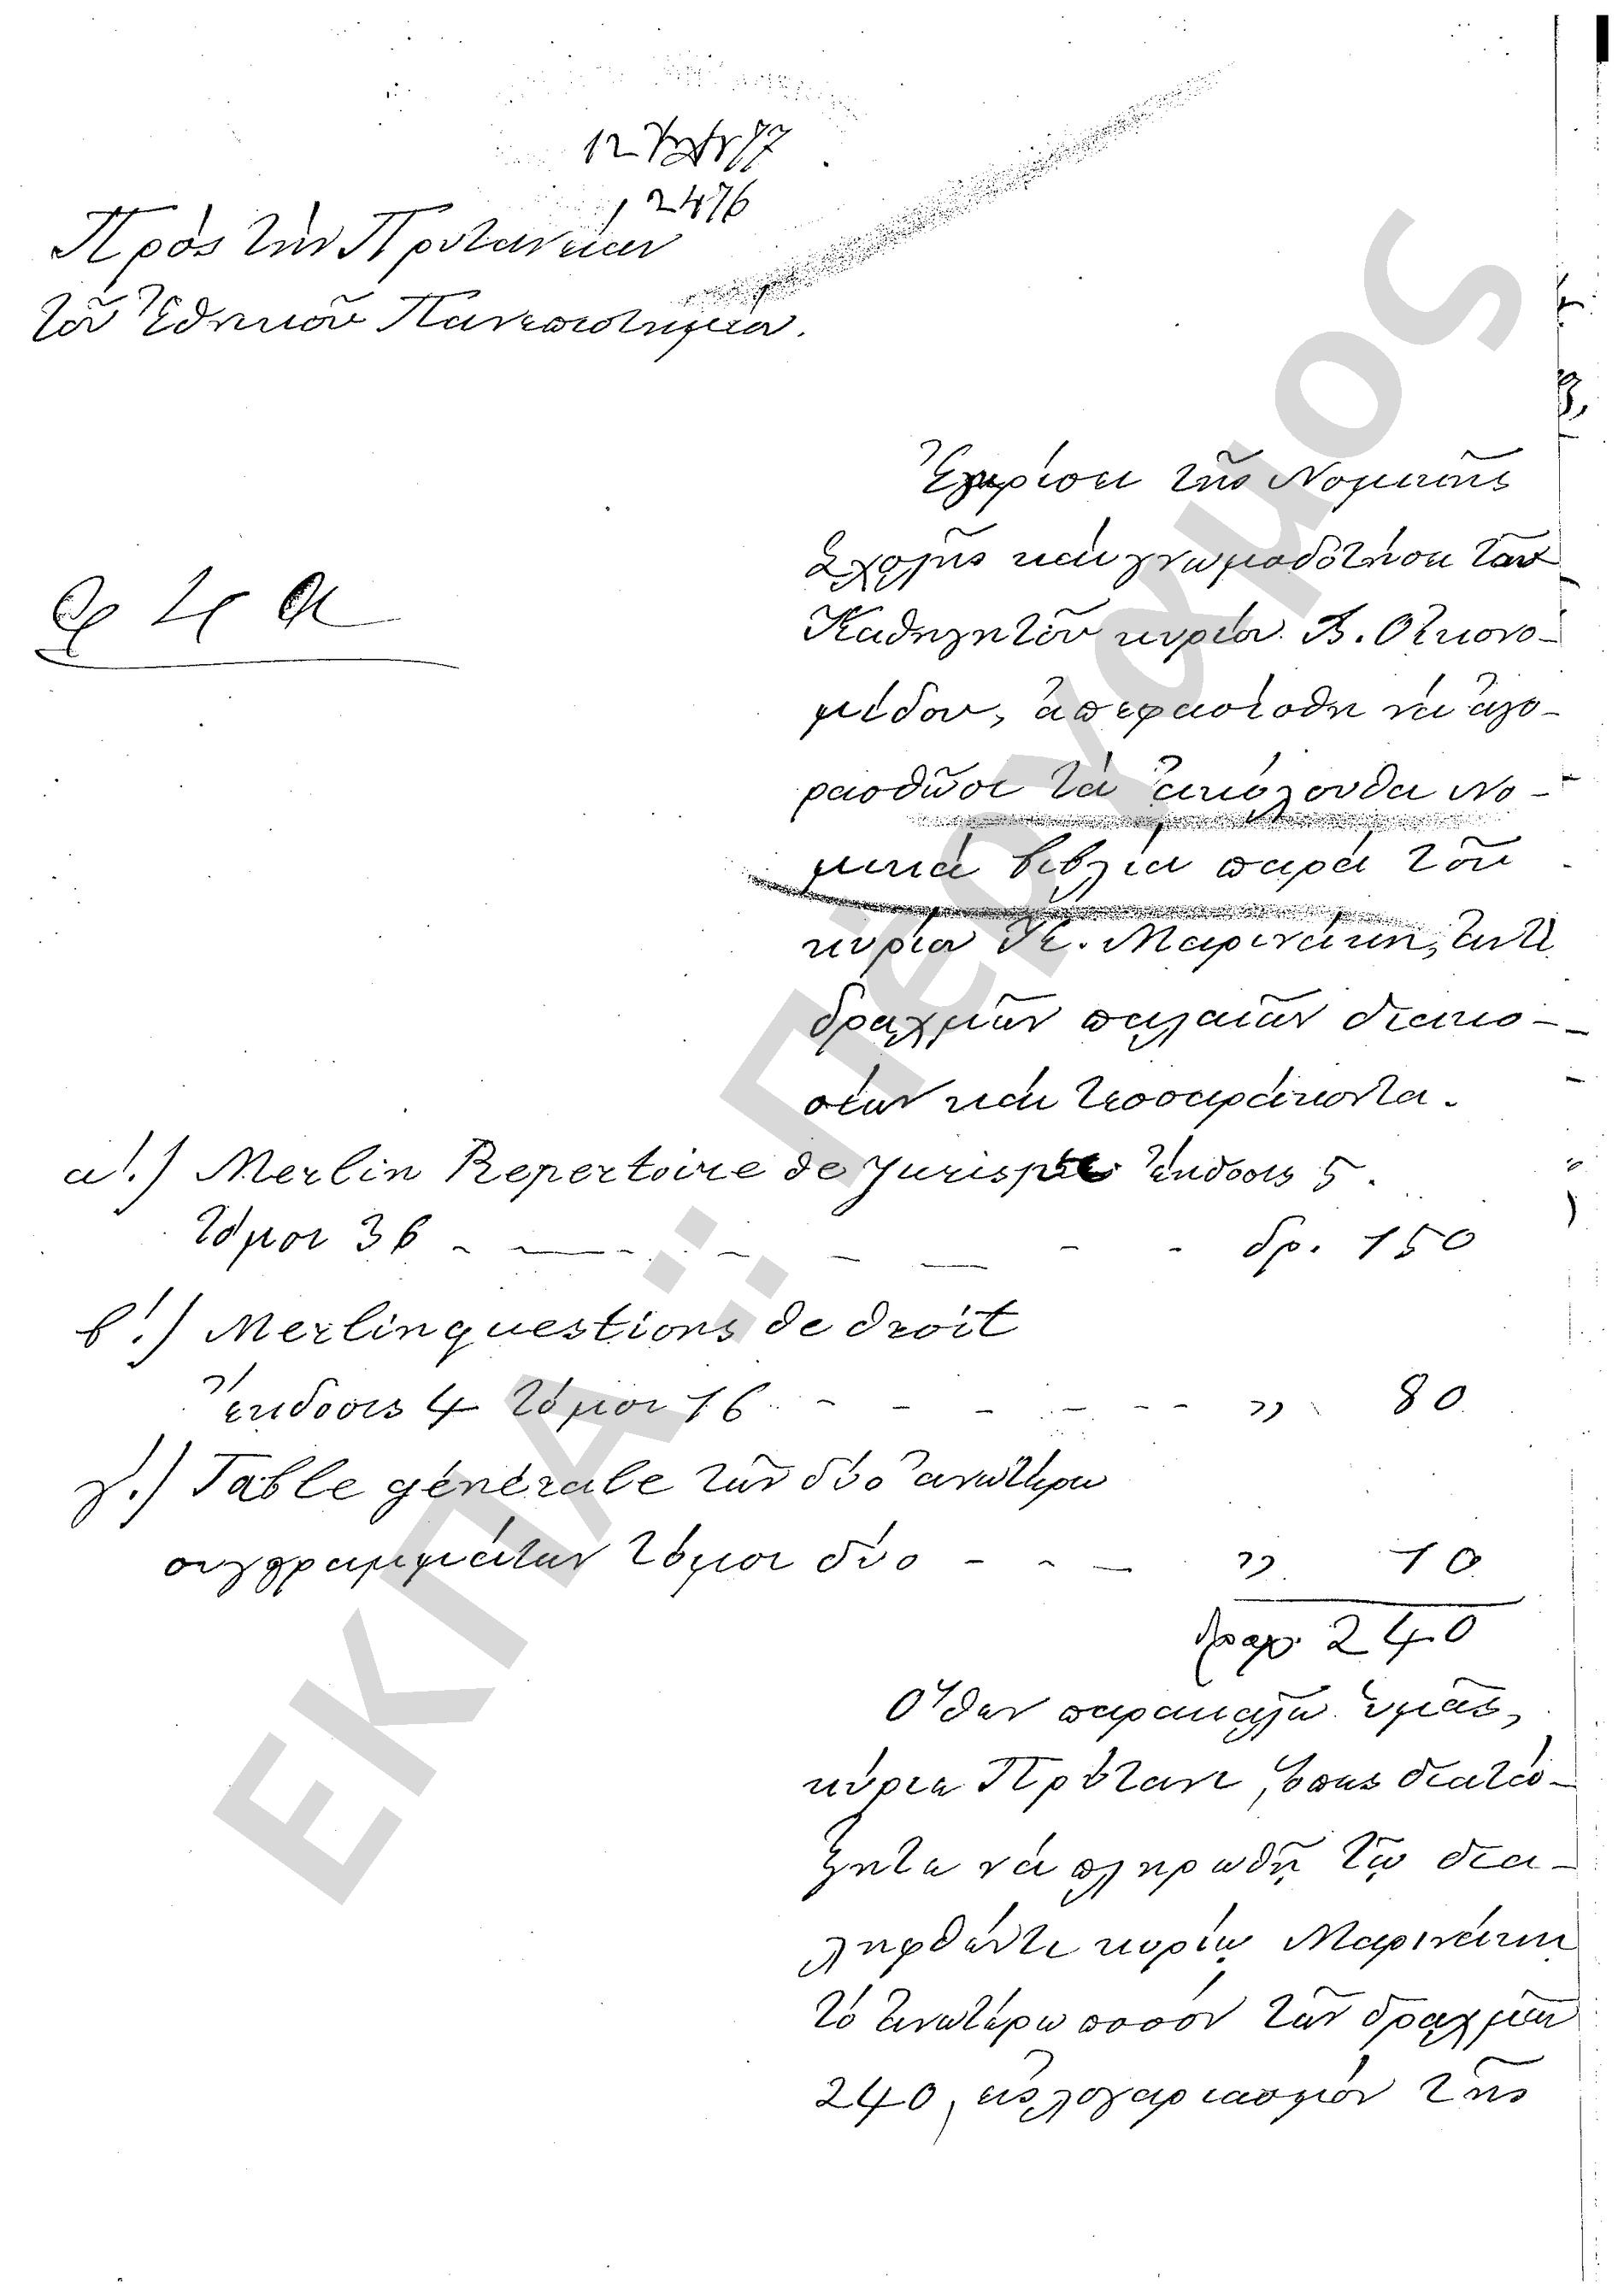 12
2476
Πρὸς τὴν Πρυτανείαν
τοῦ Ἐθνικοῦ Πανεπιστημίου.
Ἐγκρίσει τῆς Νομικῆς
Σχολῆς καὶ γνωμοδοτήσει τοῦ
Καθηγητοῦ κυρίου Β. Οἰκονο-
μίδου, ἀπεφασίσθη νὰ ἀγο-
ρασθῶσι τὰ ἀκόλουθα νο-
μικὰ βιβλία παρὰ τοῦ
κυρίου Μαρινάκη, ἀντὶ
δραχμῶν παλαιῶν διακο-
σίων καὶ τεσσαράκοντα.
α'.) Merlin Repertoire de Jurisp ἔκδοσις 5.
τόμοι 36 - - - - - - - δρ. 150
β'.) Merlin questions de droit
ἔκδοσις 4 τόμοι 16 - - - - - - " 80
γ'.) Table générale τῶν δύο ἀνωτέρω
συγγραμμάτων τόμοι δύο - - - " 10
δραχ. 240
Ὅθεν παρακαλῶ ὑμᾶς,
κύριε Πρύτανι, ὅπως διατά-
ξητε νὰ πληρωθῇ τῷ δια-
ληφθέντι κυρίῳ Μαρινάκῃ
τὸ ἀνωτέρω ποσὸν τῶν δραχμῶν
240, εἰς λογαριασμὸν τῆς
ΕΚΠΑ:: Πέργαμος